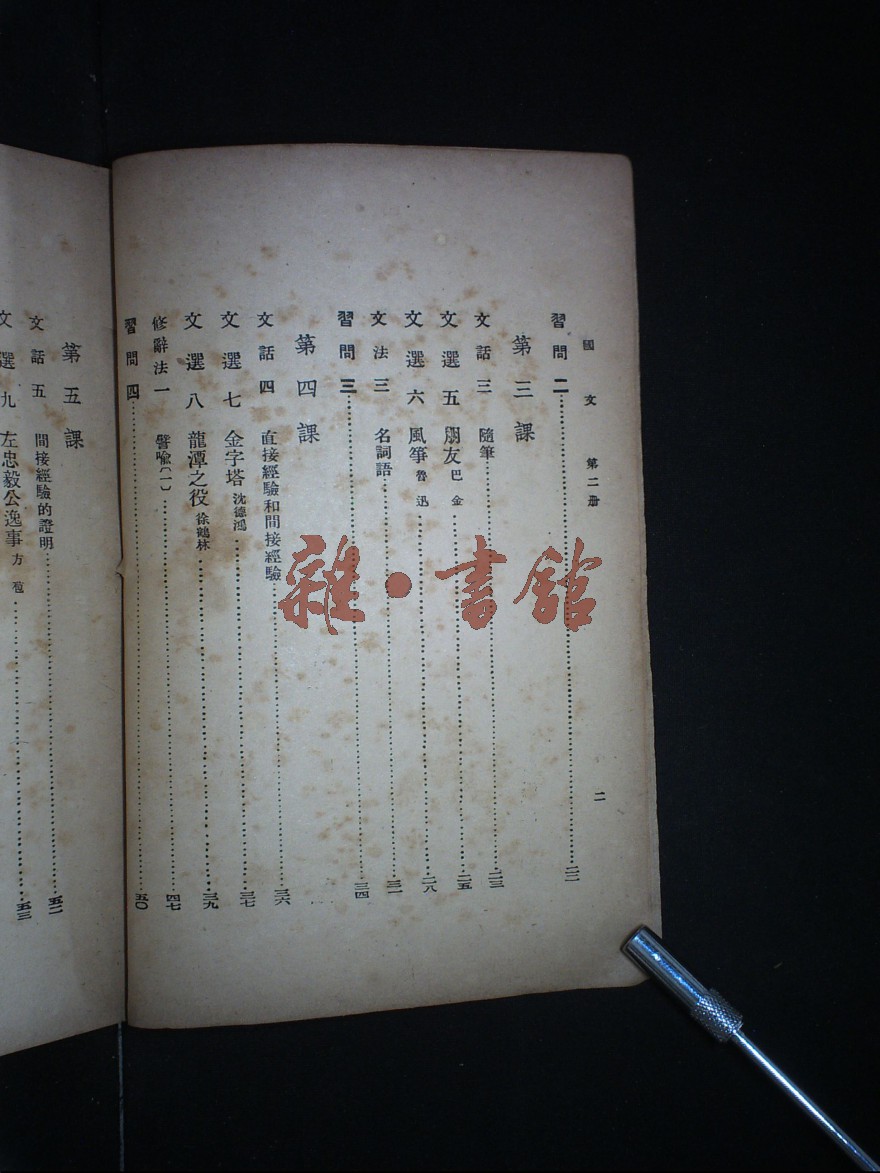 國文 第二册 二
習問二 二二
第三課
文話三 隨筆 二三
文選五 朋友 巴金 二五
文選六 風箏 魯迅 二八
文法三 名詞語 三一
習問三 三四
第四課
文話四 直接經驗和間接經驗 三六
文選七 金字塔 沈德鴻 三七
文選八 龍潭之役 徐鶴林 三九
修辭法一 譬喩(一) 四七
習問四 五〇
第五課
文話五 間接經驗的證明 五二
文選九 左忠毅公逸事 方苞 五三
雜·書館